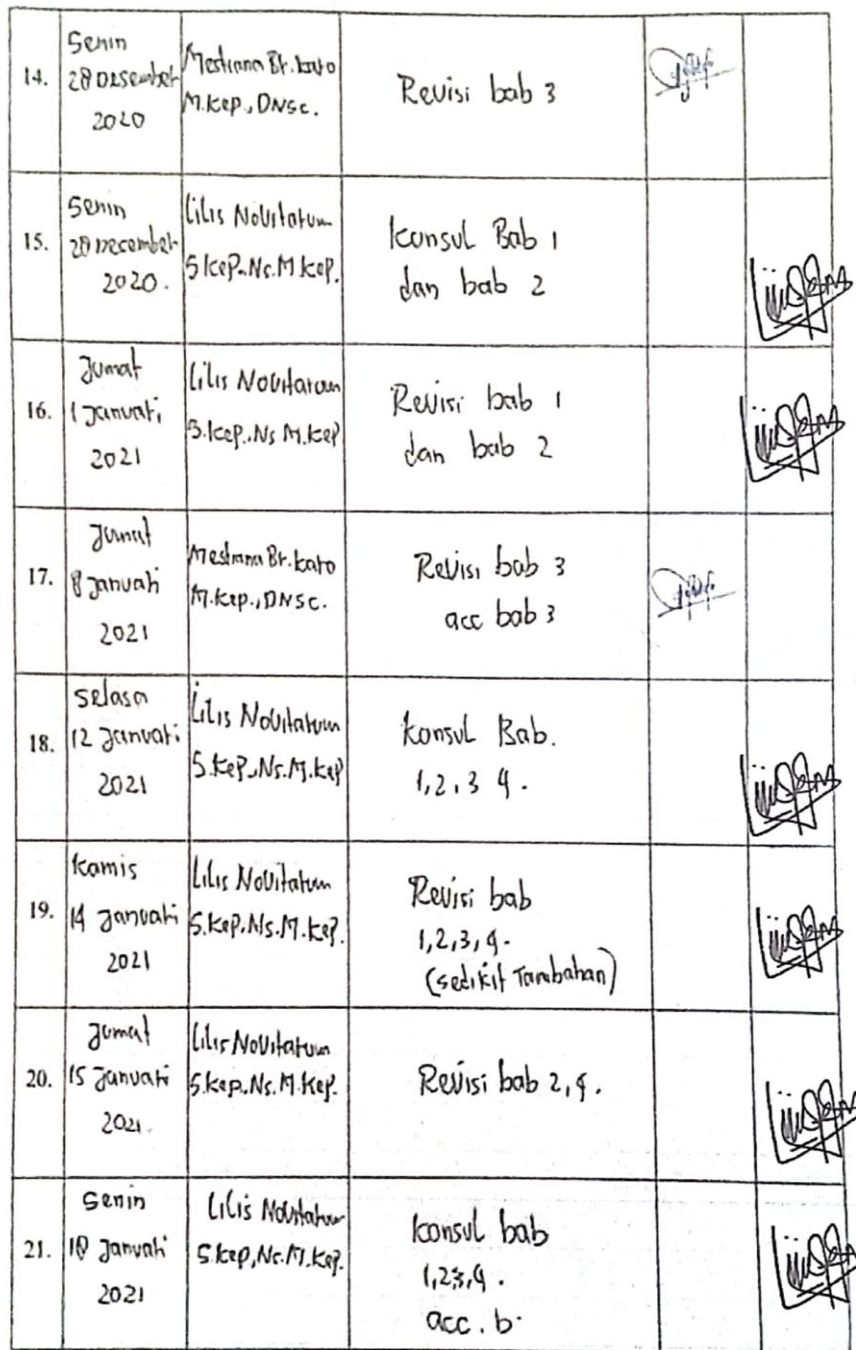 14.
Senin
28 Desember
2020
Mestiana Br. karo
M.kep., DNSc.
Revisi bab 3
15.
Senin
28 December
2020.
Lilis Novitarum
S.kep.Ns.M.kep.
konsul Bab 1
dan bab 2
16.
Jumat
1 Januari
2021
Lilis Novitarum
S.kep.Ns M.kep
Revisi bab 1
dan bab 2
17.
Jumat
8 Januari
2021
Mestiana Br. karo
M.kep., DNSc.
Revisi bab 3
acc bab 3
18.
Selasa
12 Januari
2021
Lilis Novitarum
S.kep.Ns.M.kep
konsul Bab.
1,2,3 4.
19.
Kamis
14 Januari
2021
Lilis Novitarum
S.kep.Ns.M.kep.
Revisi bab
1,2,3,4.
(sedikit Tambahan)
20.
Jumat
15 Januari
2021.
Lilis Novitarum
S.kep.Ns.M.kep.
Revisi bab 2,4.
21.
Senin
18 Januari
2021
Lilis Novitarum
S.kep,Ns.M.kep.
konsul bab
1,23,4.
acc. b.